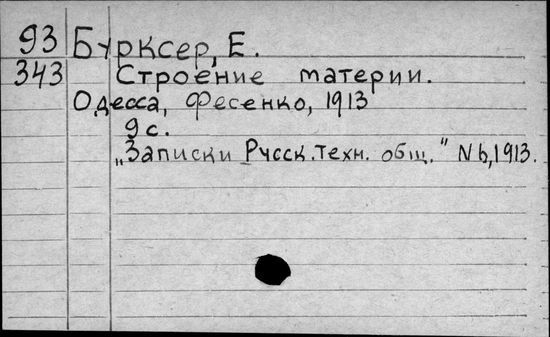 93 Бурксер, Е.
343 Строение материи.
Одесса, Фесенко, 1913
9 с.
„Записки Русск. Техн. общ." N 6, 1913.